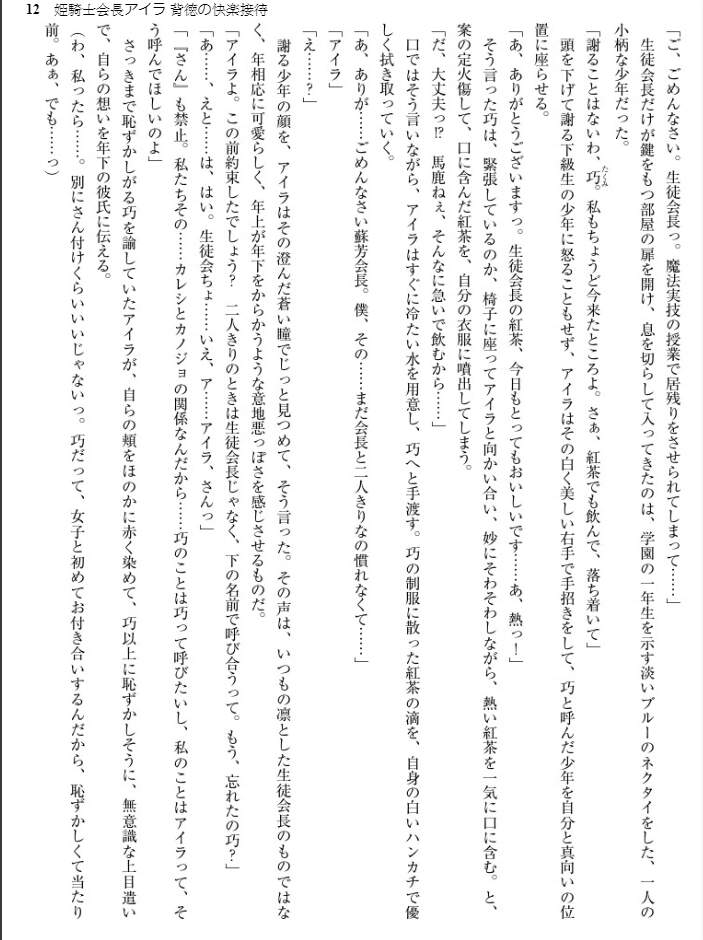 12　姫騎士会長アイラ 背徳の快楽接待
「ご、ごめんなさい。生徒会長っ。魔法実技の授業で居残りをさせられてしまって……」
　生徒会長だけが鍵をもつ部屋の扉を開け、息を切らして入ってきたのは、学園の一年生を示す淡いブルーのネクタイをした、一人の
小柄な少年だった。
「謝ることはないわ、巧。私もちょうど今来たところよ。さぁ、紅茶でも飲んで、落ち着いて」
たくみ
　頭を下げて謝る下級生の少年に怒ることもせず、アイラはその白く美しい右手で手招きをして、巧と呼んだ少年を自分と真向いの位
置に座らせる。
「あ、ありがとうございますっ。生徒会長の紅茶、今日もとってもおいしいです……あ、熱っ！」
　そう言った巧は、緊張しているのか、椅子に座ってアイラと向かい合い、妙にそわそわしながら、熱い紅茶を一気に口に含む。と、
案の定火傷して、口に含んだ紅茶を、自分の衣服に噴出してしまう。
「だ、大丈夫っ!?　馬鹿ねぇ、そんなに急いで飲むから……」
　口ではそう言いながら、アイラはすぐに冷たい水を用意し、巧へと手渡す。巧の制服に散った紅茶の滴を、自身の白いハンカチで優
しく拭き取っていく。
「あ、ありが……ごめんなさい蘇芳会長。僕、その……まだ会長と二人きりなの慣れなくて……」
「アイラ」
「え……？」
　謝る少年の顔を、アイラはその澄んだ蒼い瞳でじっと見つめて、そう言った。その声は、いつもの凛とした生徒会長のものではな
く、年相応に可愛らしく、年上が年下をからかうような意地悪っぽさを感じさせるものだ。
「アイラよ。この前約束したでしょう？　二人きりのときは生徒会長じゃなく、下の名前で呼び合うって。もう、忘れたの巧？」
「あ……、えと……は、はい。生徒会ちょ……いえ、ア……アイラ、さんっ」
「『さん』も禁止。私たちその……カレシとカノジョの関係なんだから……巧のことは巧って呼びたいし、私のことはアイラって、そ
う呼んでほしいのよ」
　さっきまで恥ずかしがる巧を諭していたアイラが、自らの頬をほのかに赤く染めて、巧以上に恥ずかしそうに、無意識な上目遣い
で、自らの想いを年下の彼氏に伝える。
（わ、私ったら……。別にさん付けくらいいいじゃないっ。巧だって、女子と初めてお付き合いするんだから、恥ずかしくて当たり
前。あぁ、でも……っ）